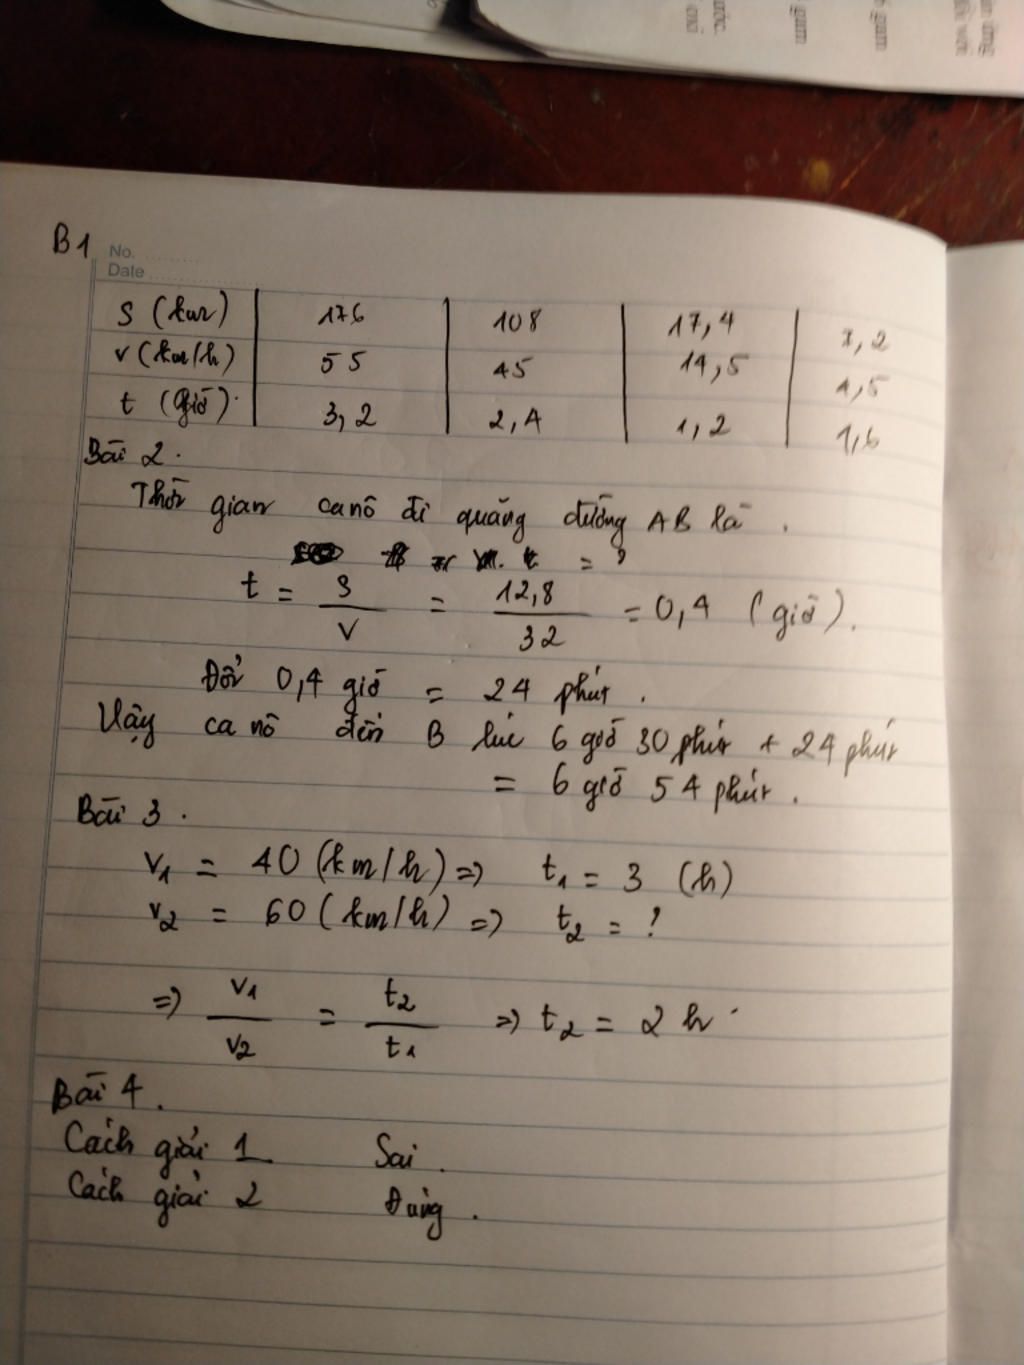 gam
gam
B1
No.
Date
S (km) 176 108 17,4 7,2
v (km/h) 55 45 14,5 4,5
t (giờ). 3,2 2,4 1,2 1,6
Bài 2.
Thời gian canô đi quãng đường AB là.
= ?
t = S/v = 12,8/32 = 0,4 (giờ).
Đổi 0,4 giờ = 24 phút.
Vậy ca nô đến B lúc 6 giờ 30 phút + 24 phút
= 6 giờ 54 phút.
Bài 3.
v1 = 40 (km/h) => t1 = 3 (h)
v2 = 60 (km/h) => t2 = ?
=> v1/v2 = t2/t1 => t2 = 2 h.
Bài 4.
Cách giải 1 Sai.
Cách giải 2 Đúng.